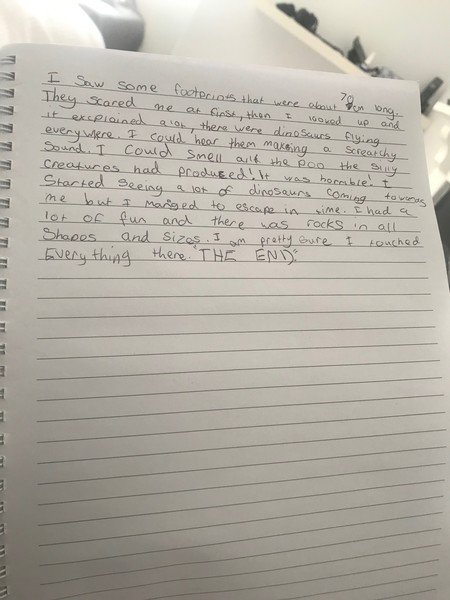 I saw some footprints that were about 70cm long.
They scared me at first, then I looked up and
it excplained alot, there were dinosaurs flying
everywhere. I could hear them making a screatchy
sound. I could smell all the poo the silly
creatures had produced! It was horrible! I
started seeing a lot of dinosaurs coming towards
me but I manged to escape in time. I had a
lot of fun and there was rocks in all
shapes and sizes. I am pretty sure I touched
everything there. "THE END."